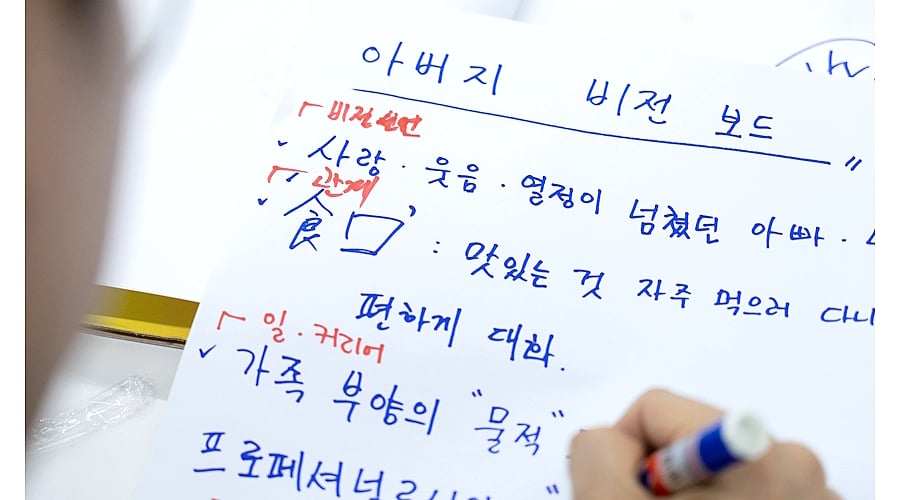 아버지 비전 보드
비전선언
✓ 사랑 · 웃음 · 열정이 넘쳤던 아빠 ·
관계
✓ 食口 : 맛있는 것 자주 먹으러 다니
편하게 대화.
일 · 커리어
✓ 가족 부양의 "물적"
프로페셔널